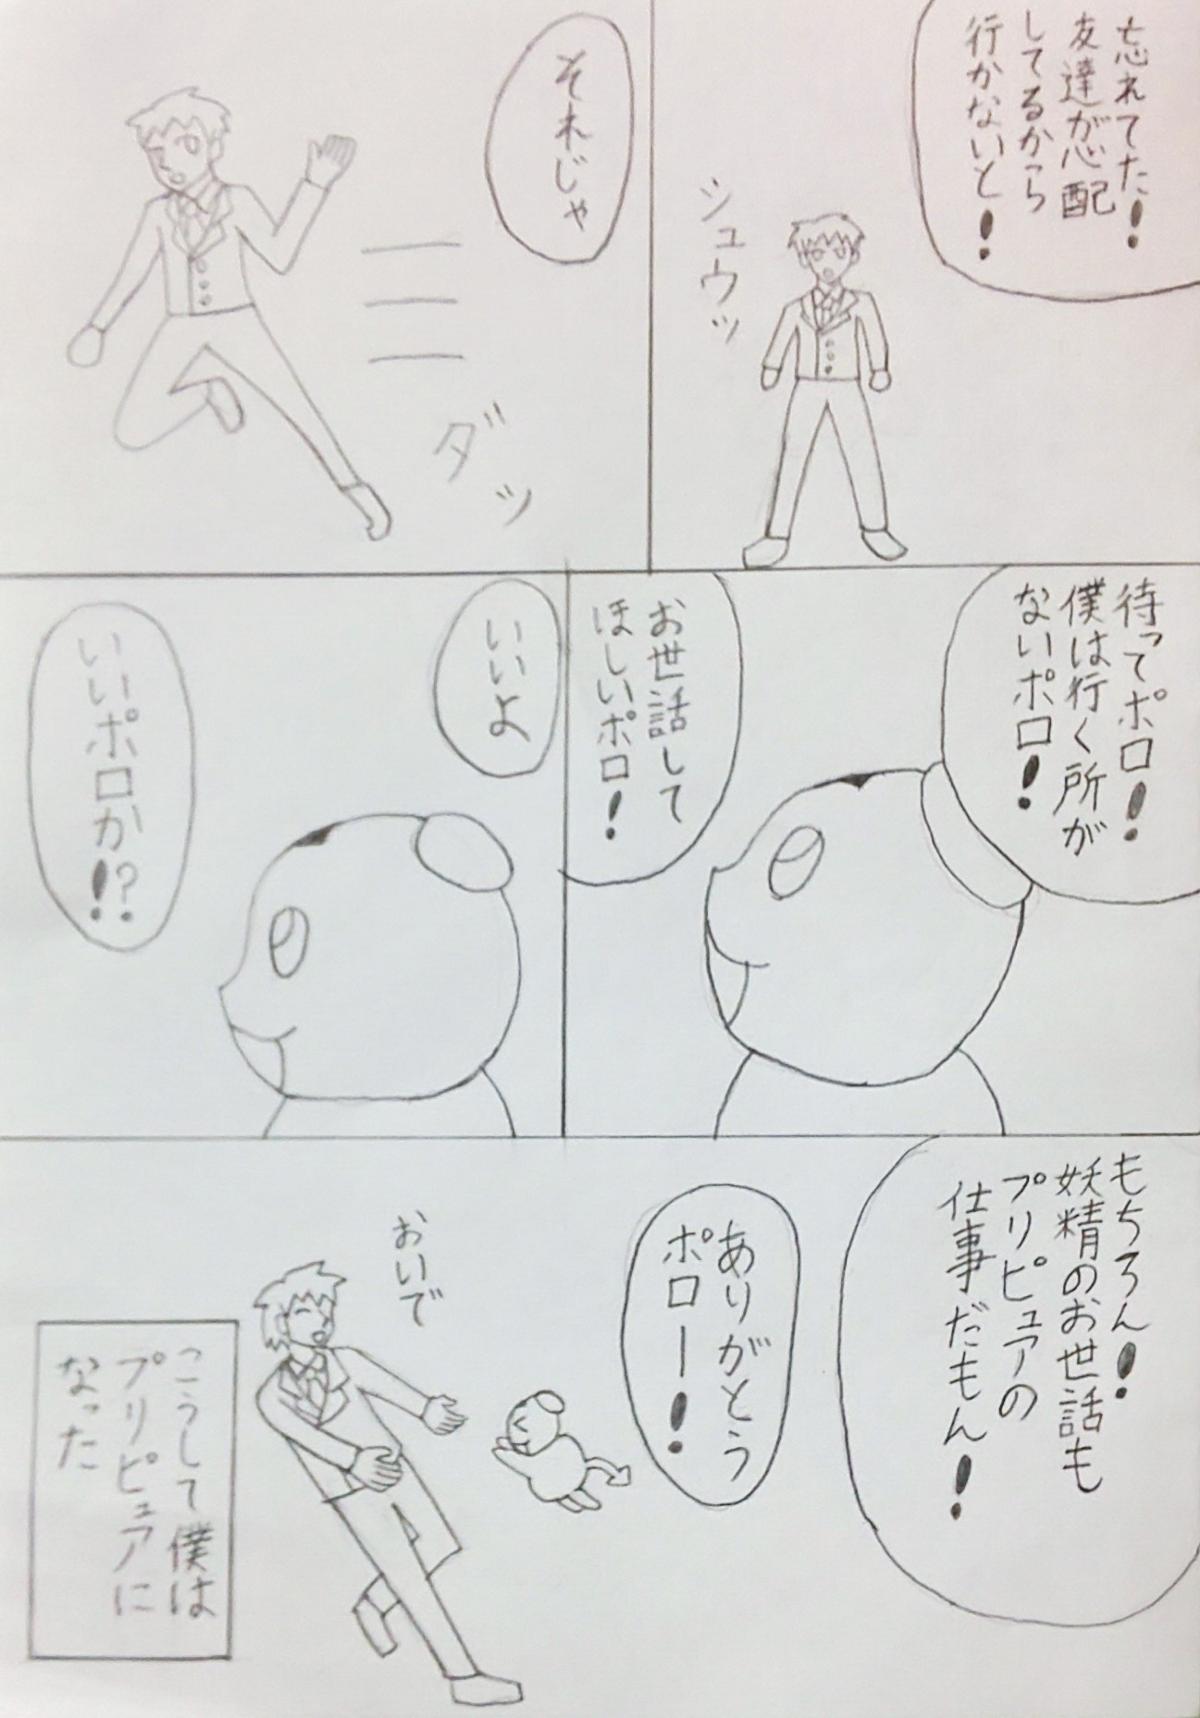 忘れてた!
友達が心配
してるから
行かないと!
シュウッ
それじゃ
ダッ
待ってポロ!
僕は行く所が
ないポロ!
お世話して
ほしいポロ!
いいよ
いいポロか!?
もちろん!
妖精のお世話も
プリピュアの
仕事だもん!
ありがとう
ポロー!
おいで
こうして僕は
プリピュアに
なった